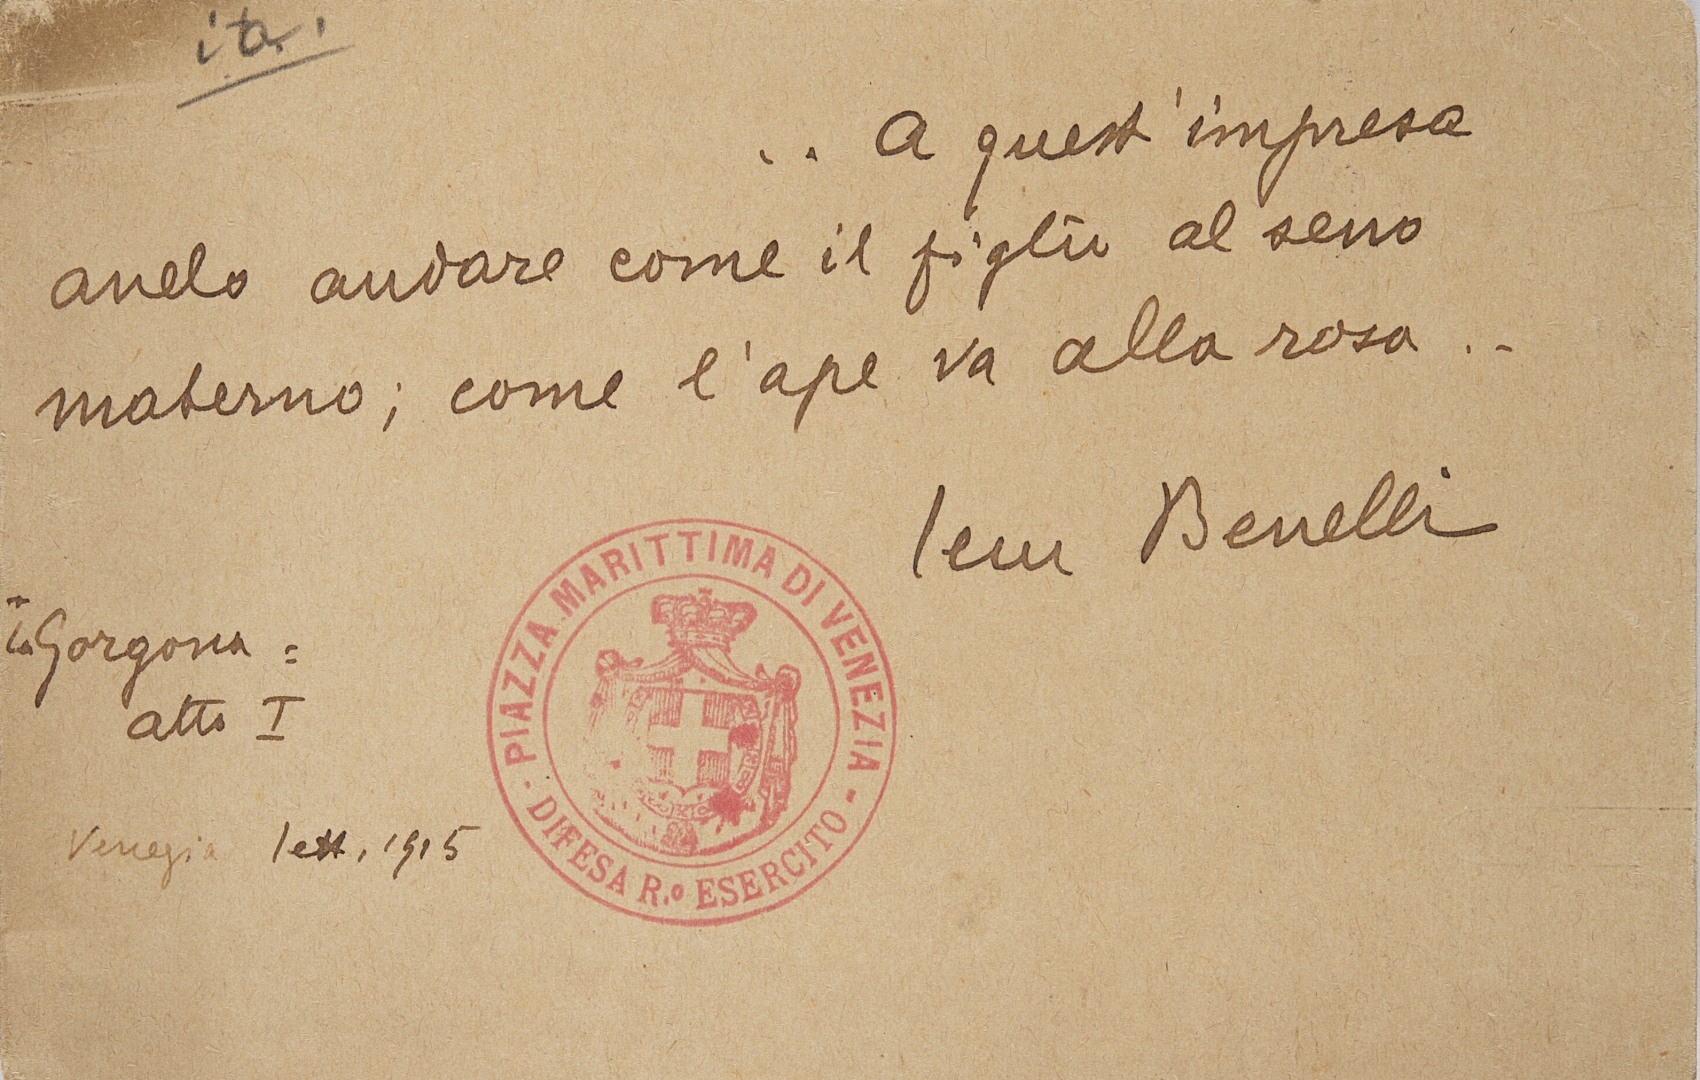 ita.
.. A quest'impresa
anelo andare come il figlio al seno
materno; come l'ape va alla rosa ..
Sem Benelli
PIAZZA MARITTIMA DI VENEZIA
- DIFESA R.º ESERCITO -
La Gorgona =
atto I
Venezia Sett. 1915